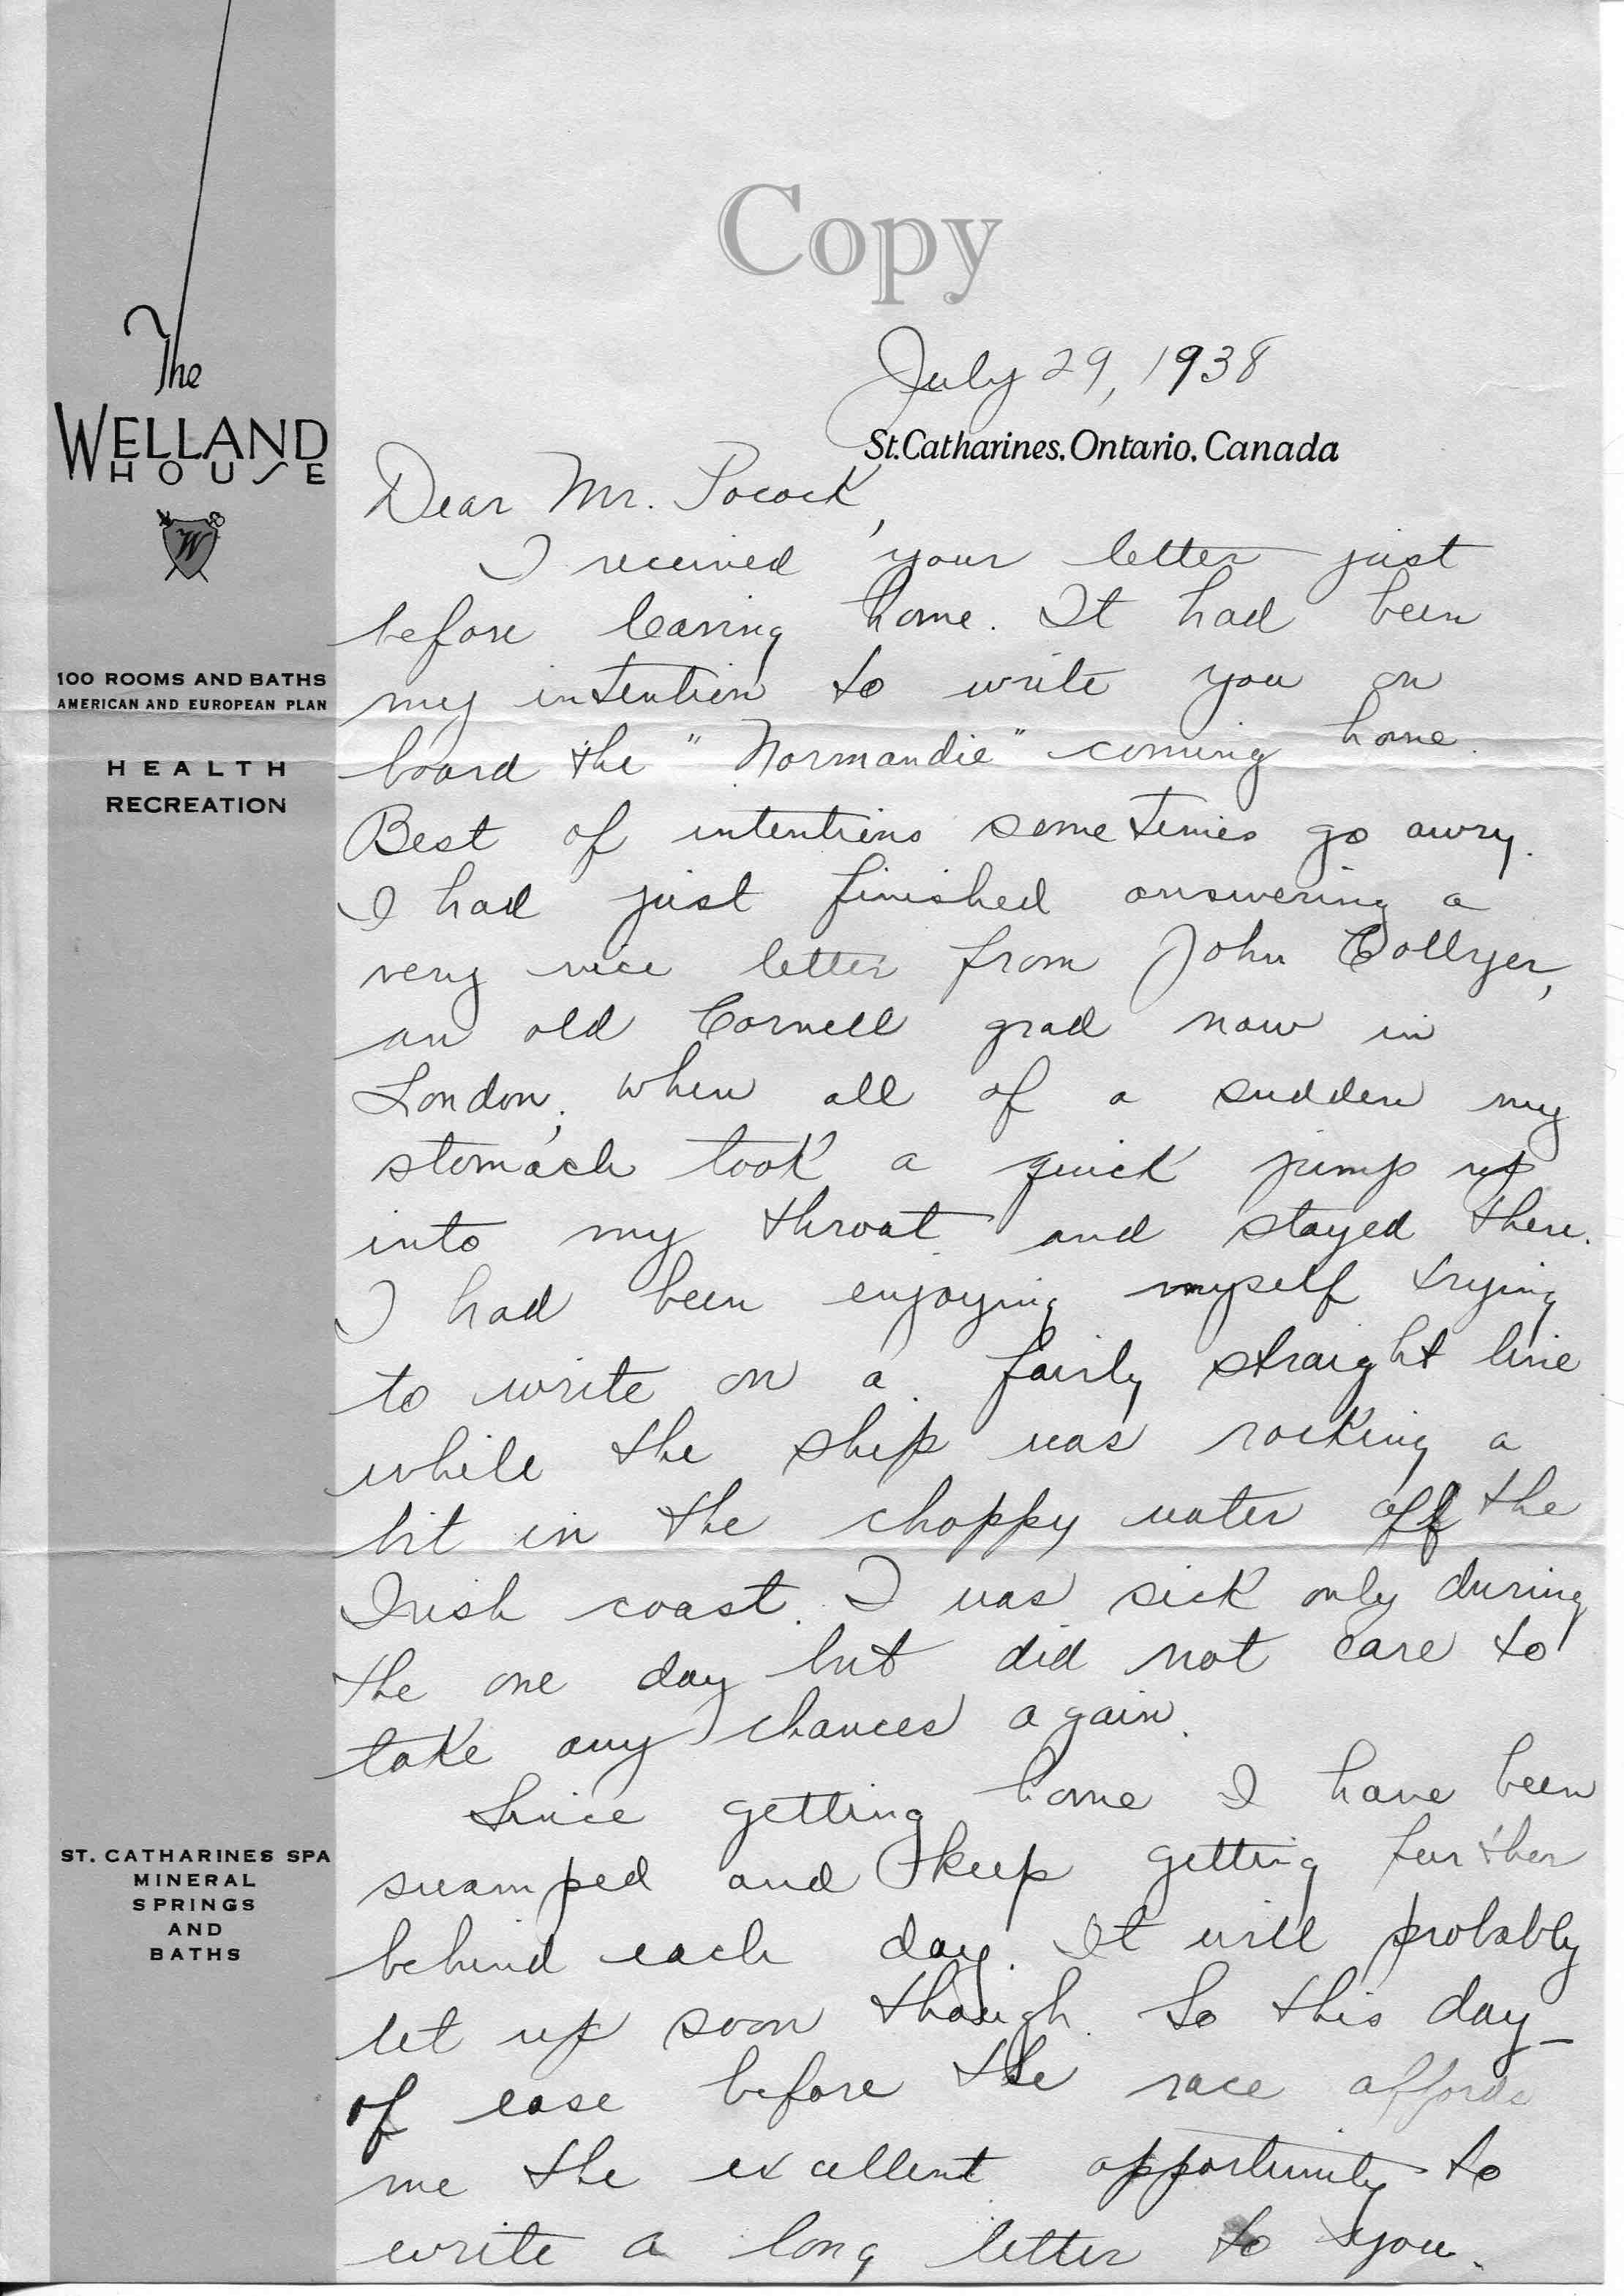 Copy
July 29, 1938
St. Catharines, Ontario, Canada
The
WELLAND
HOUSE
W
100 ROOMS AND BATHS
AMERICAN AND EUROPEAN PLAN
HEALTH
RECREATION
ST. CATHARINES SPA
MINERAL
SPRINGS
AND
BATHS
Dear Mr. Pocock,
I received your letter just
before leaving home. It had been
my intention to write you on
board the "Normandie" coming home.
Best of intentions sometimes go awry.
I had just finished answering a
very nice letter from John Collyer,
an old Cornell grad now in
London, when all of a sudden my
stomach took a quick jump up
into my throat and stayed there.
I had been enjoying myself trying
to write on a fairly straight line
while the ship was rocking a
bit in the choppy water off the
Irish coast. I was sick only during
the one day but did not care to
take any chances again.
Since getting home I have been
swamped and keep getting further
behind each day. It will probably
let up soon though. So this day
of ease before the race affords
me the excellent opportunity to
write a long letter to you.